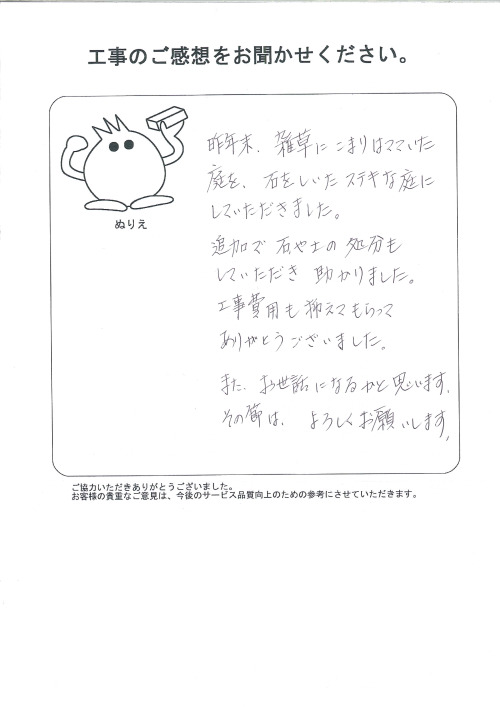 工事のご感想をお聞かせください。
ぬりえ
昨年末、雑草にこまりはてていた
庭を、石をしいたステキな庭に
していただきました。
追加で石や土の処分も
していただき助かりました。
工事費用も抑えてもらって
ありがとうございました。
また、お世話になるかと思います、
その節は、よろしくお願いします、
ご協力いただきありがとうございました。
お客様の貴重なご意見は、今後のサービス品質向上のための参考にさせていただきます。